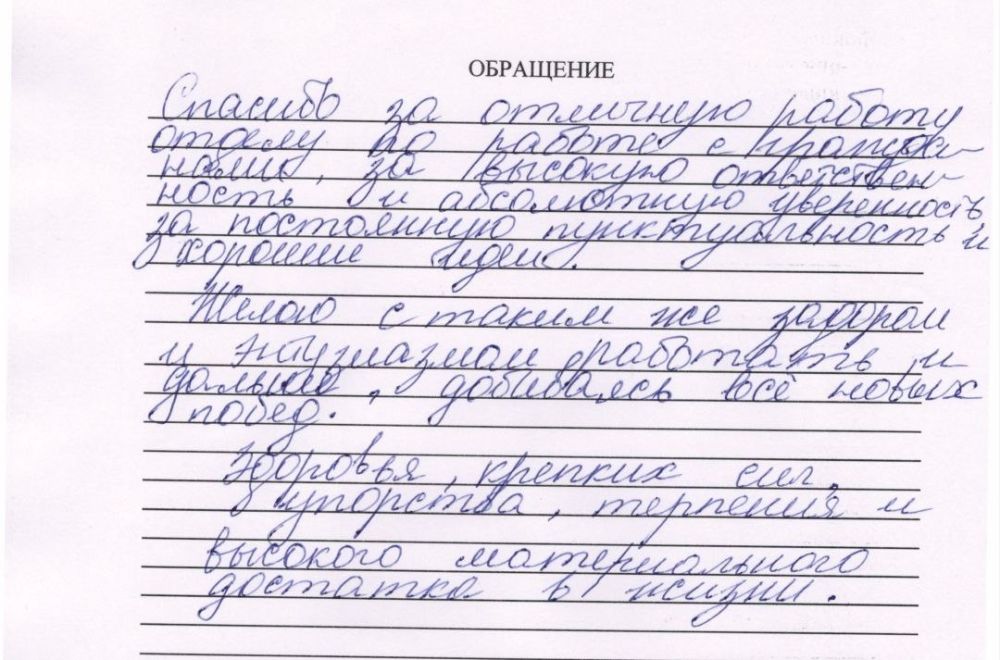 ОБРАЩЕНИЕ
Спасибо за отличную работу
отделу по работе с гражда-
нами, за высокую ответствен-
ность и абсолютную уверенность
за постоянную пунктуальность и
хорошие идеи.
Желаю с таким же задором
и энтузиазмом работать и
дальше, добиваясь всё новых
побед.
Здоровья, крепких сил,
упорства, терпения и
высокого материального
достатка в жизни.